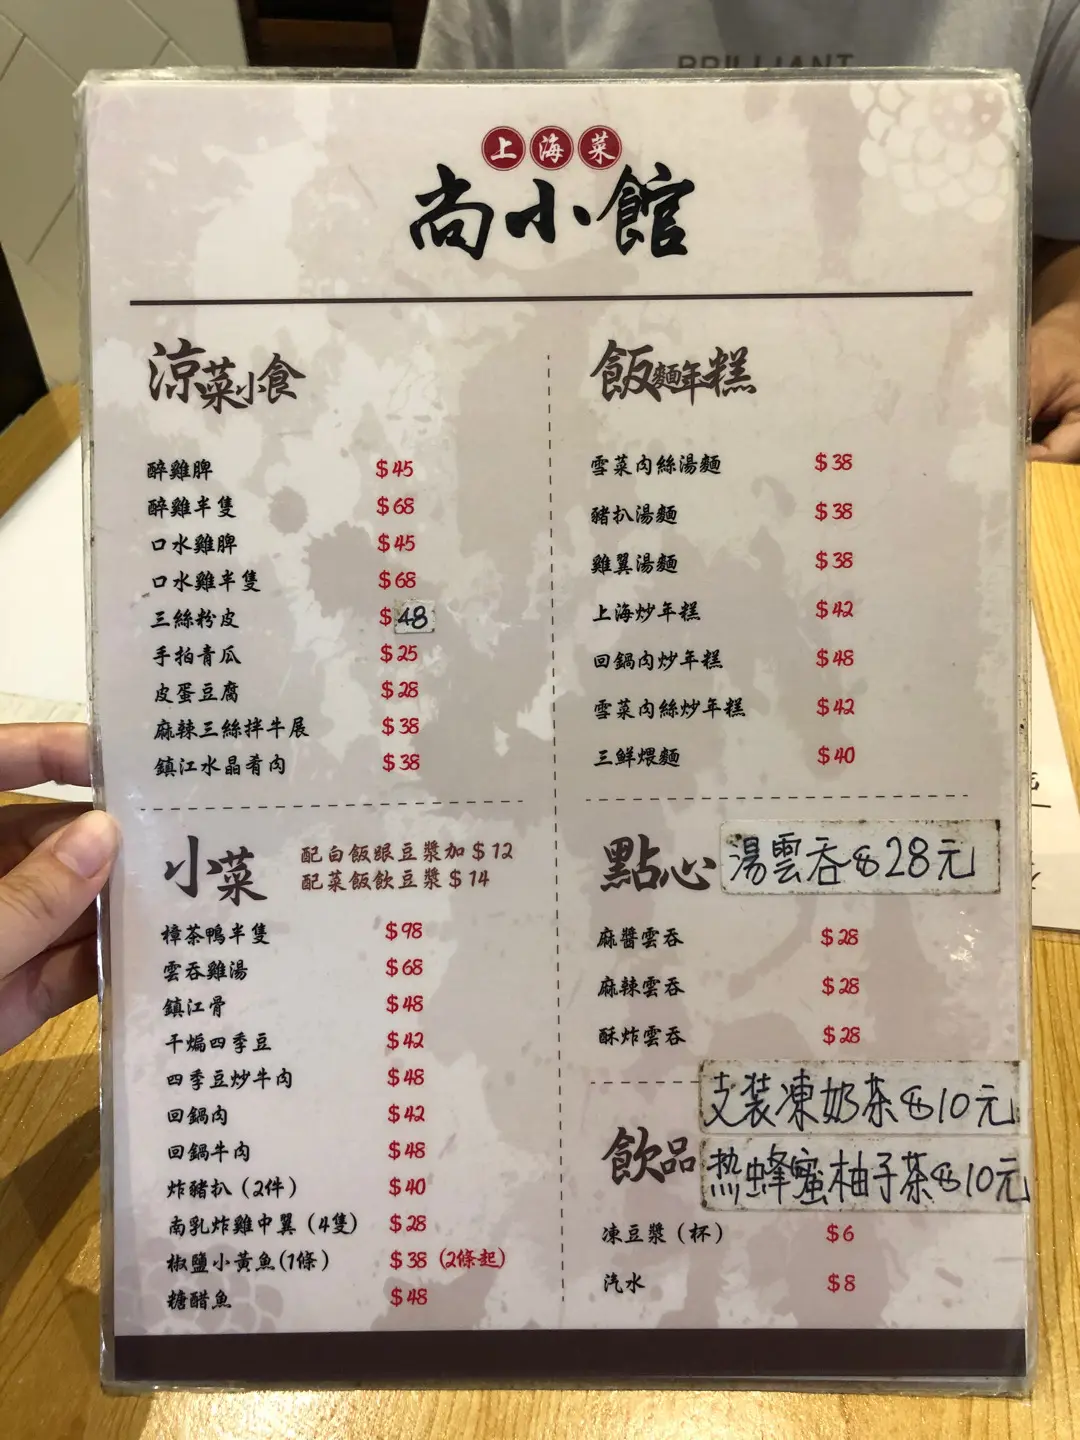 BRILLIANT
上海菜
尚小館
涼菜小食
醉雞脾 $45
醉雞半隻 $68
口水雞脾 $45
口水雞半隻 $68
三絲粉皮 $48
手拍青瓜 $25
皮蛋豆腐 $28
麻辣三絲拌牛展 $38
鎮江水晶肴肉 $38
飯麵年糕
雪菜肉絲湯麵 $38
豬扒湯麵 $38
雞翼湯麵 $38
上海炒年糕 $42
回鍋肉炒年糕 $48
雪菜肉絲炒年糕 $42
三鮮煨麵 $40
小菜
配白飯跟豆漿加 $12
配菜飯飲豆漿 $14
樟茶鴨半隻 $98
雲吞雞湯 $68
鎮江骨 $48
干煸四季豆 $42
四季豆炒牛肉 $48
回鍋肉 $42
回鍋牛肉 $48
炸豬扒（2件） $40
南乳炸雞中翼（4隻） $28
椒鹽小黃魚(1條） $38 (2條起)
糖醋魚 $48
點心
湯雲吞$28元
麻醬雲吞 $28
麻辣雲吞 $28
酥炸雲吞 $28
飲品
支装凍奶茶$10元
热蜂蜜柚子茶$10元
凍豆漿（杯） $6
汽水 $8